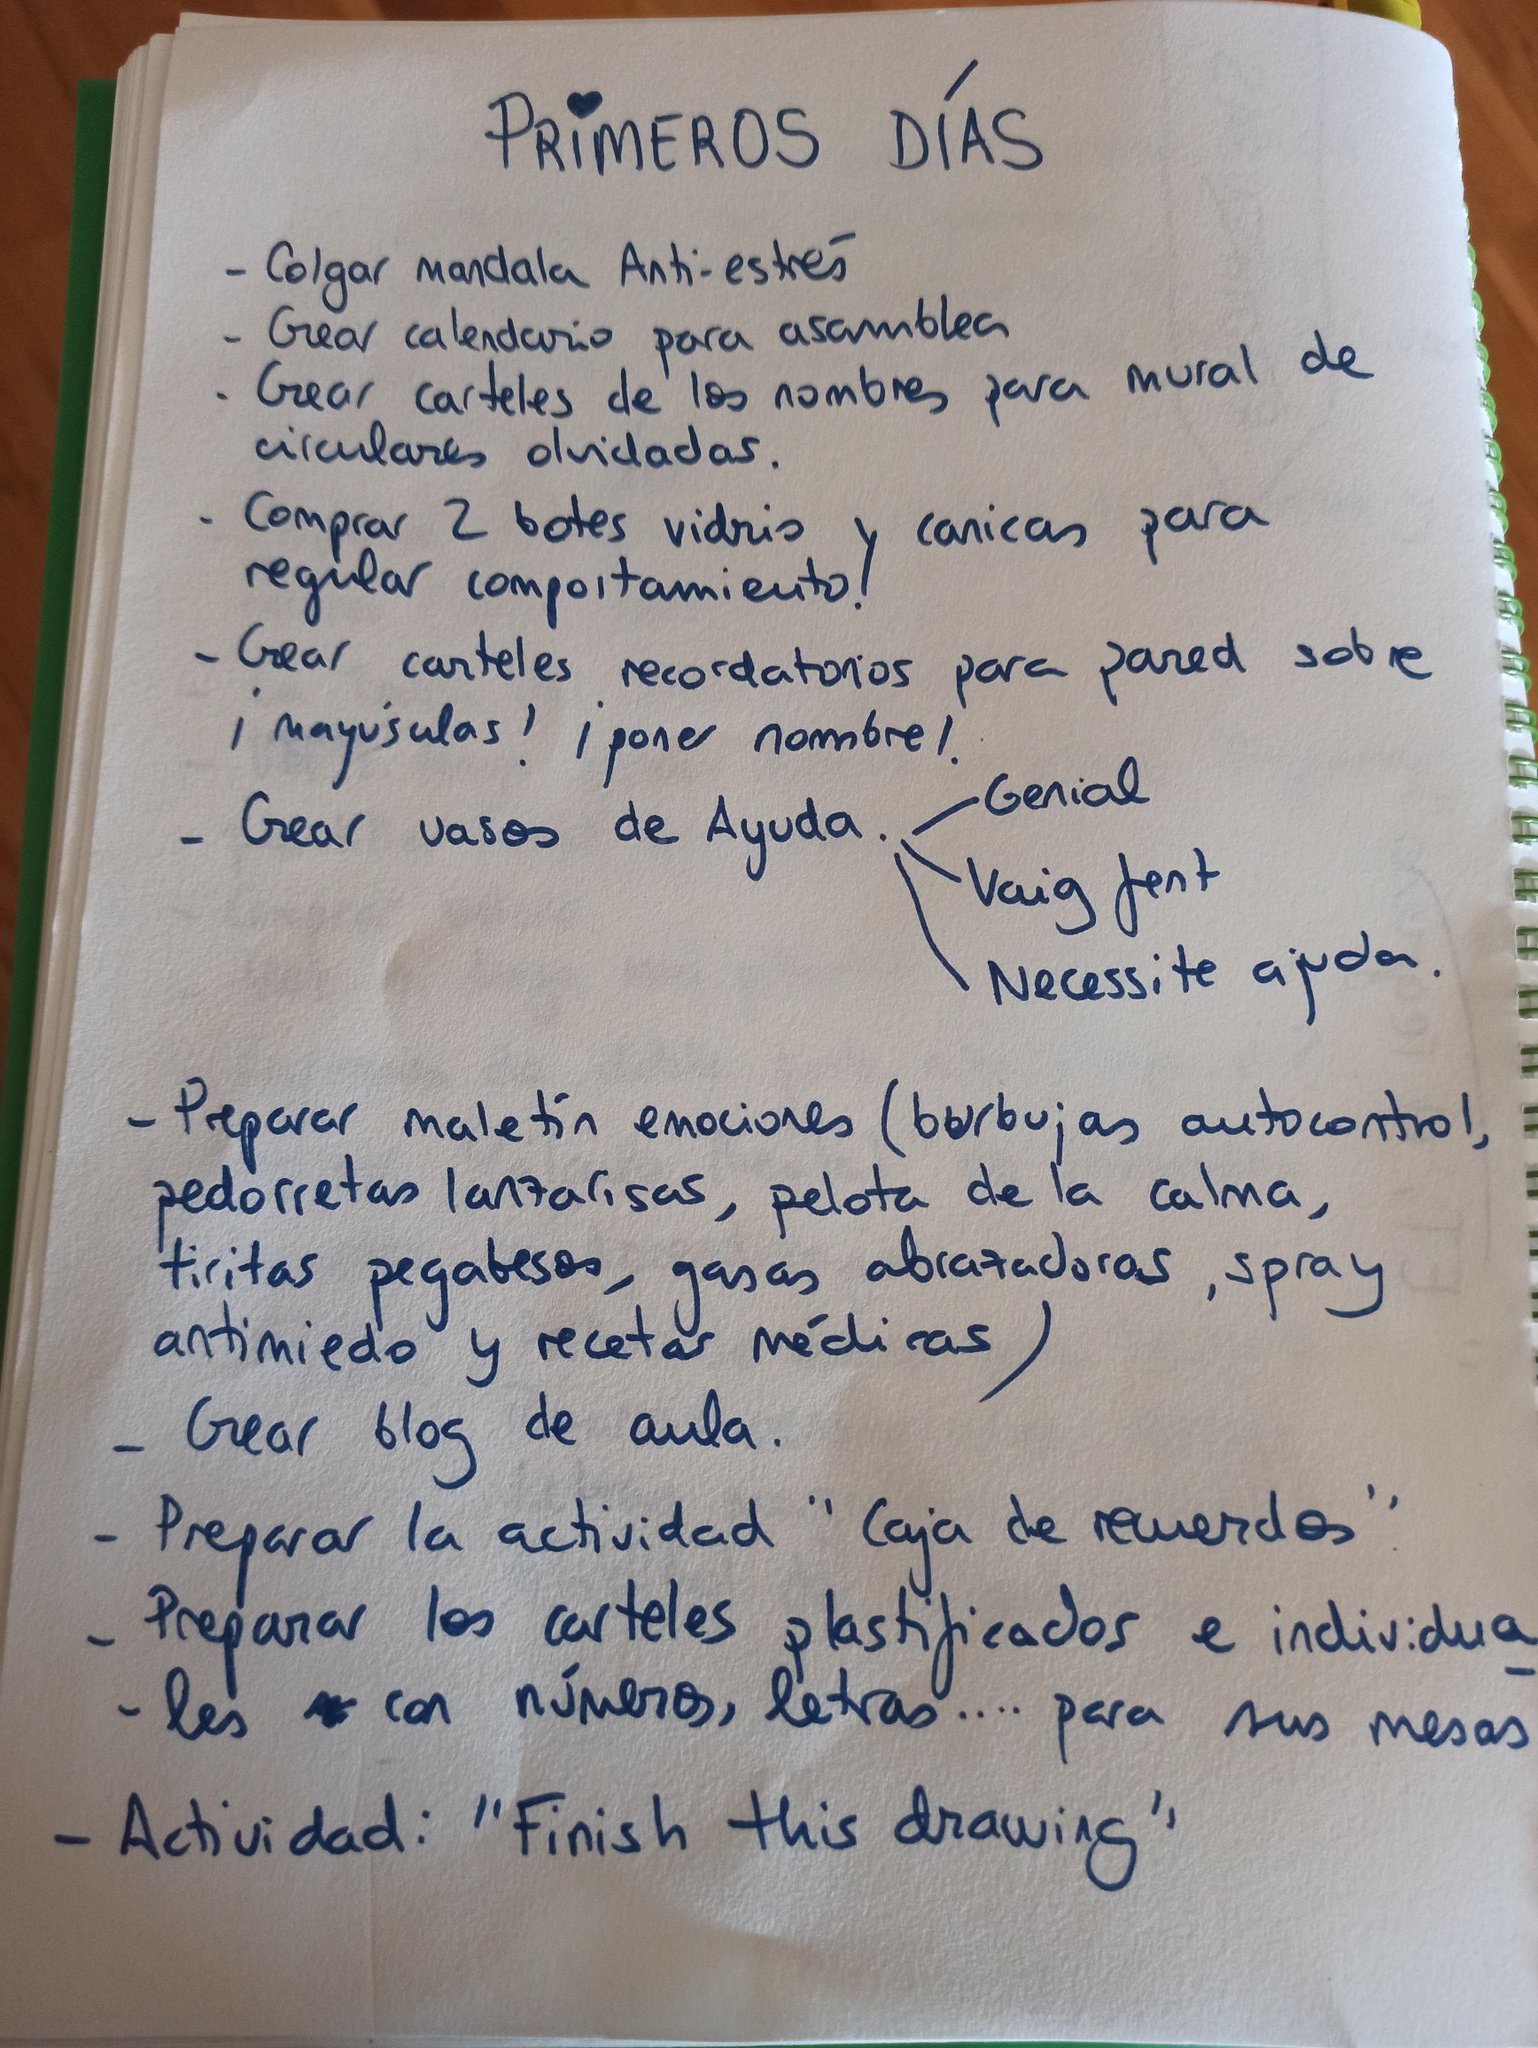 PRIMEROS DÍAS
- Colgar mandala Anti-estrés
- Crear calendario para asamblea
- Crear carteles de los nombres para mural de
circulares olvidadas.
- Comprar 2 botes vidrio y canicas para
regular comportamiento!
- Crear carteles recordatorios para pared sobre
¡mayúsulas! ¡poner nombre!
- Crear vasos de Ayuda.
Genial
Vaig fent
Necessite ajuda.
- Preparar maletín emociones (burbujas autocontrol,
pedorretas lanzarisas, pelota de la calma,
tiritas pegabesos, gasas abrazadoras, spray
antimiedo y recetas médicas)
- Crear blog de aula.
- Preparar la actividad "Caja de recuerdos"
- Preparar los carteles plastificados e individua
- les con números, letras.... para sus mesas
- Actividad: "Finish this drawing"